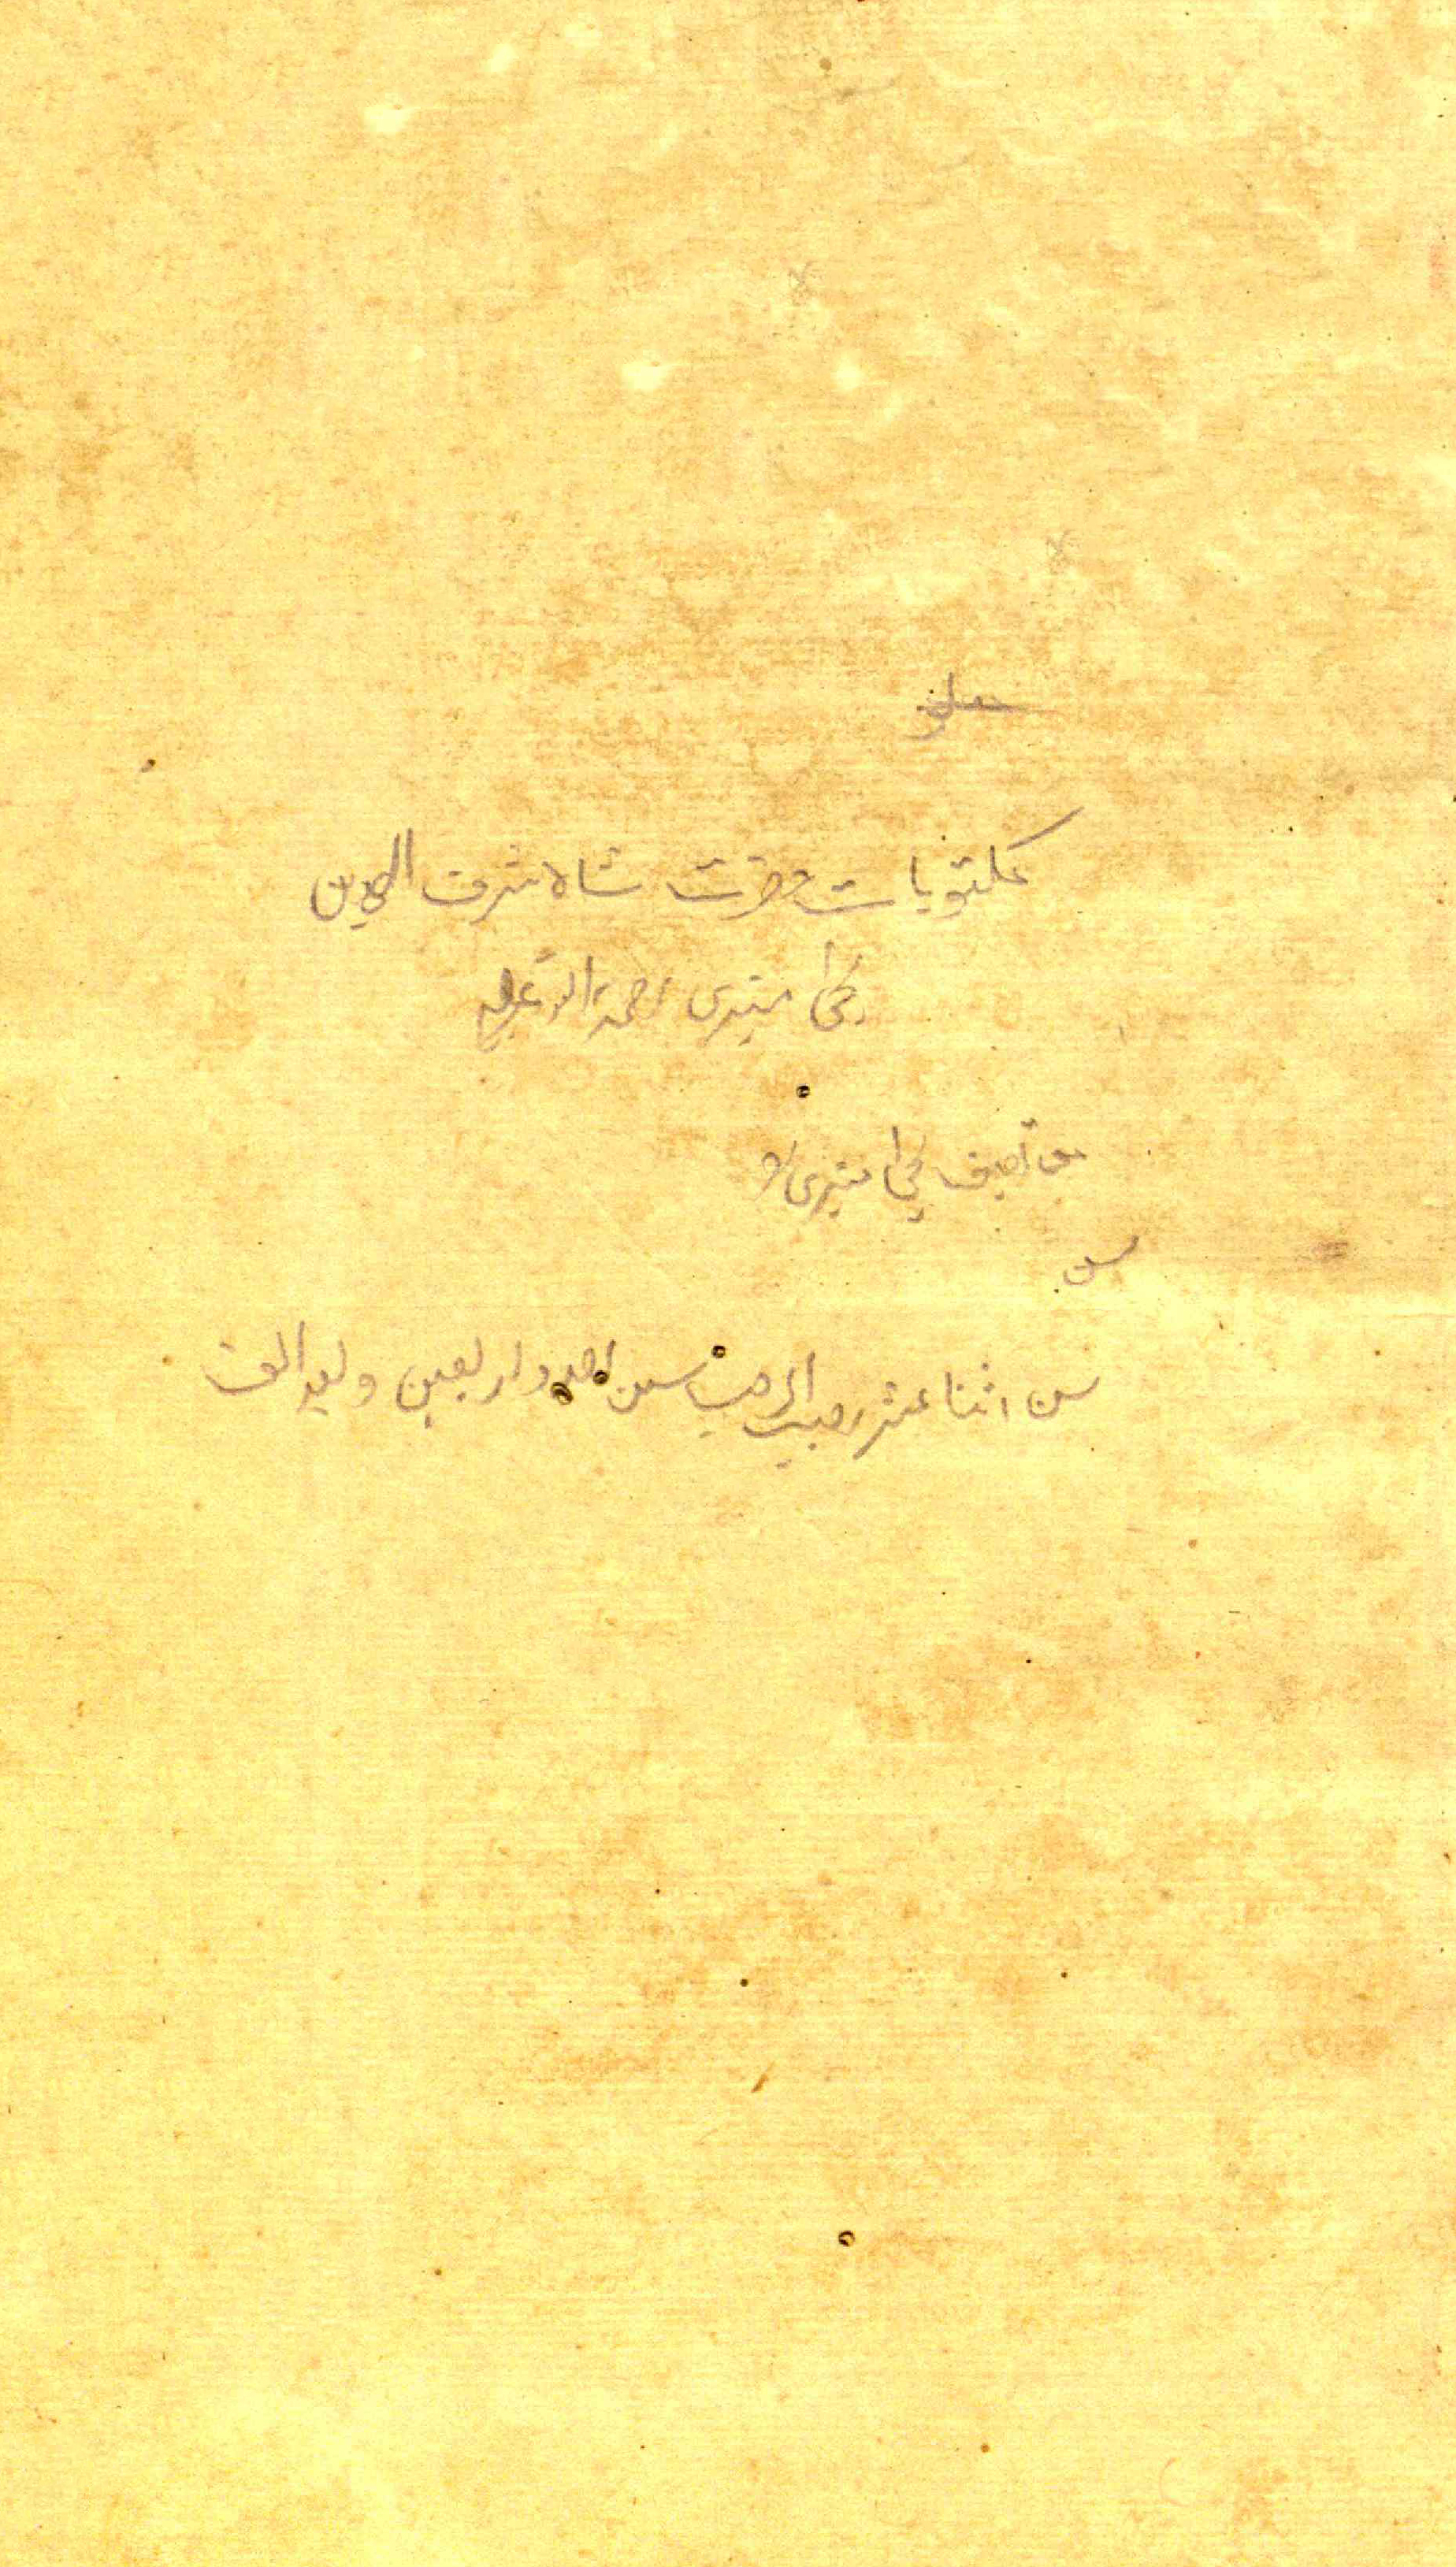 مکتوبات حضرت شاه شرف الدین
یحیٰ منیری رحمۃ اللہ علیہ
من تصنیف یحیٰ منیری
سن
سن اثنا عشر رجب الرجب سن احد و اربعین و بعد الف